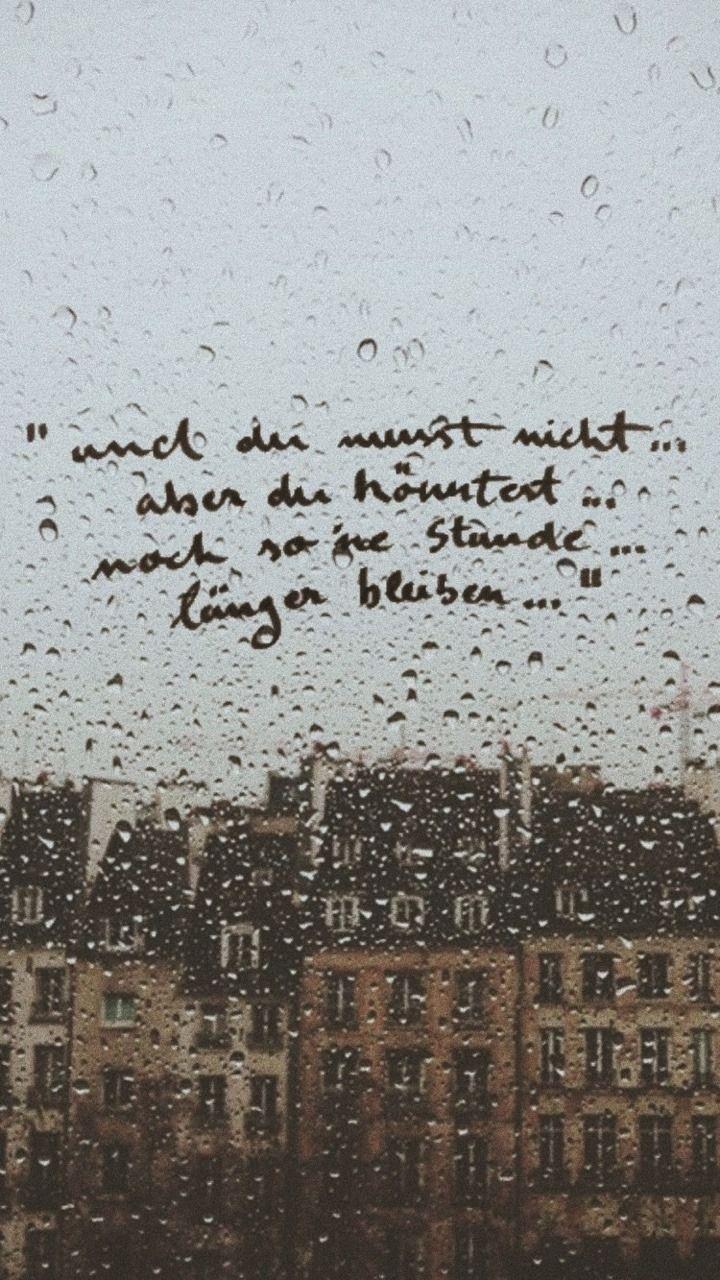 " und du musst nicht...
aber du könntest ...
noch so 'ne Stunde ...
länger bleiben ... "